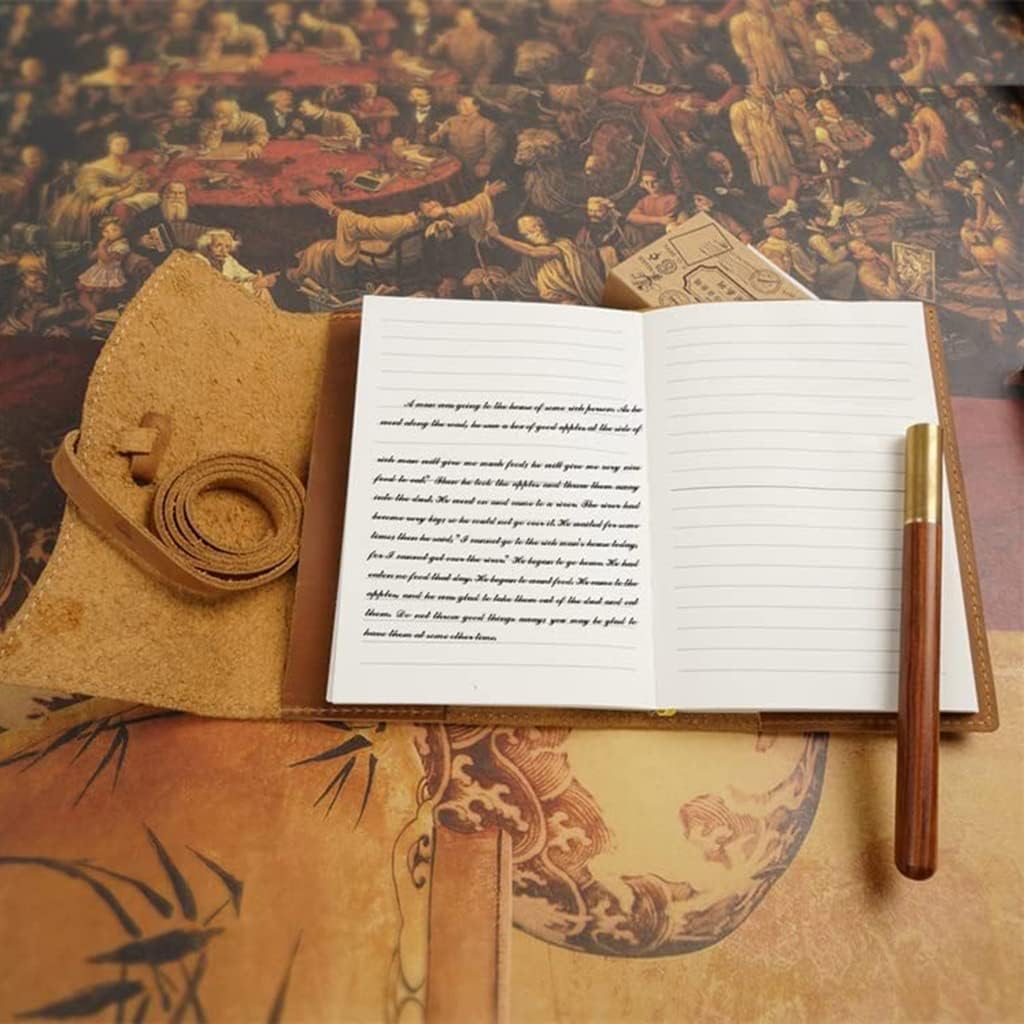 A man was going to the house of some rich person. As he
went along the road, he saw a box of good apples at the side of
rich man will give me much food; he will give me very nice
food to eat." Then he took the apples and threw them away
into the dust. He went on and came to a river. The river had
become very big; so he could not go over it. He waited for some
time; then he said, "I cannot go to the rich man's house today,
for I cannot get over the river." He began to go home. He had
eaten no food that day. He began to want food. He came to the
apples, and he was glad to take them out of the dust and eat
them. Do not throw good things away; you may be glad to
have them at some other time.